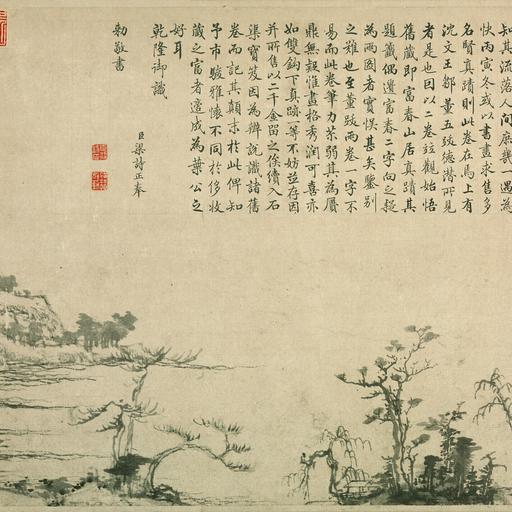 知其流落人間庶幾一遇為
快丙寅冬或以書畫求售多
名賢真蹟則此卷在焉上有
沈文王鄒董五跋德潛所見
者是也因以二卷並觀始悟
舊藏即富春山居真蹟其
題籤偶遺富春二字向之疑
為兩圖者實悞甚矣鑒別
之難也至董跋兩卷一字不
易而此卷筆力苶弱其為贋
鼎無疑惟畫格秀潤可喜亦
如雙鈎下真蹟一等不妨並存因
并所售以二千金留之俟續入石
渠寶笈因為辨說識諸舊
卷而記其顛末於此俾知
予市駿雅懷不同於侈收
藏之富者適成為葉公之
好耳
乾隆御識
臣梁詩正奉
勅敬書